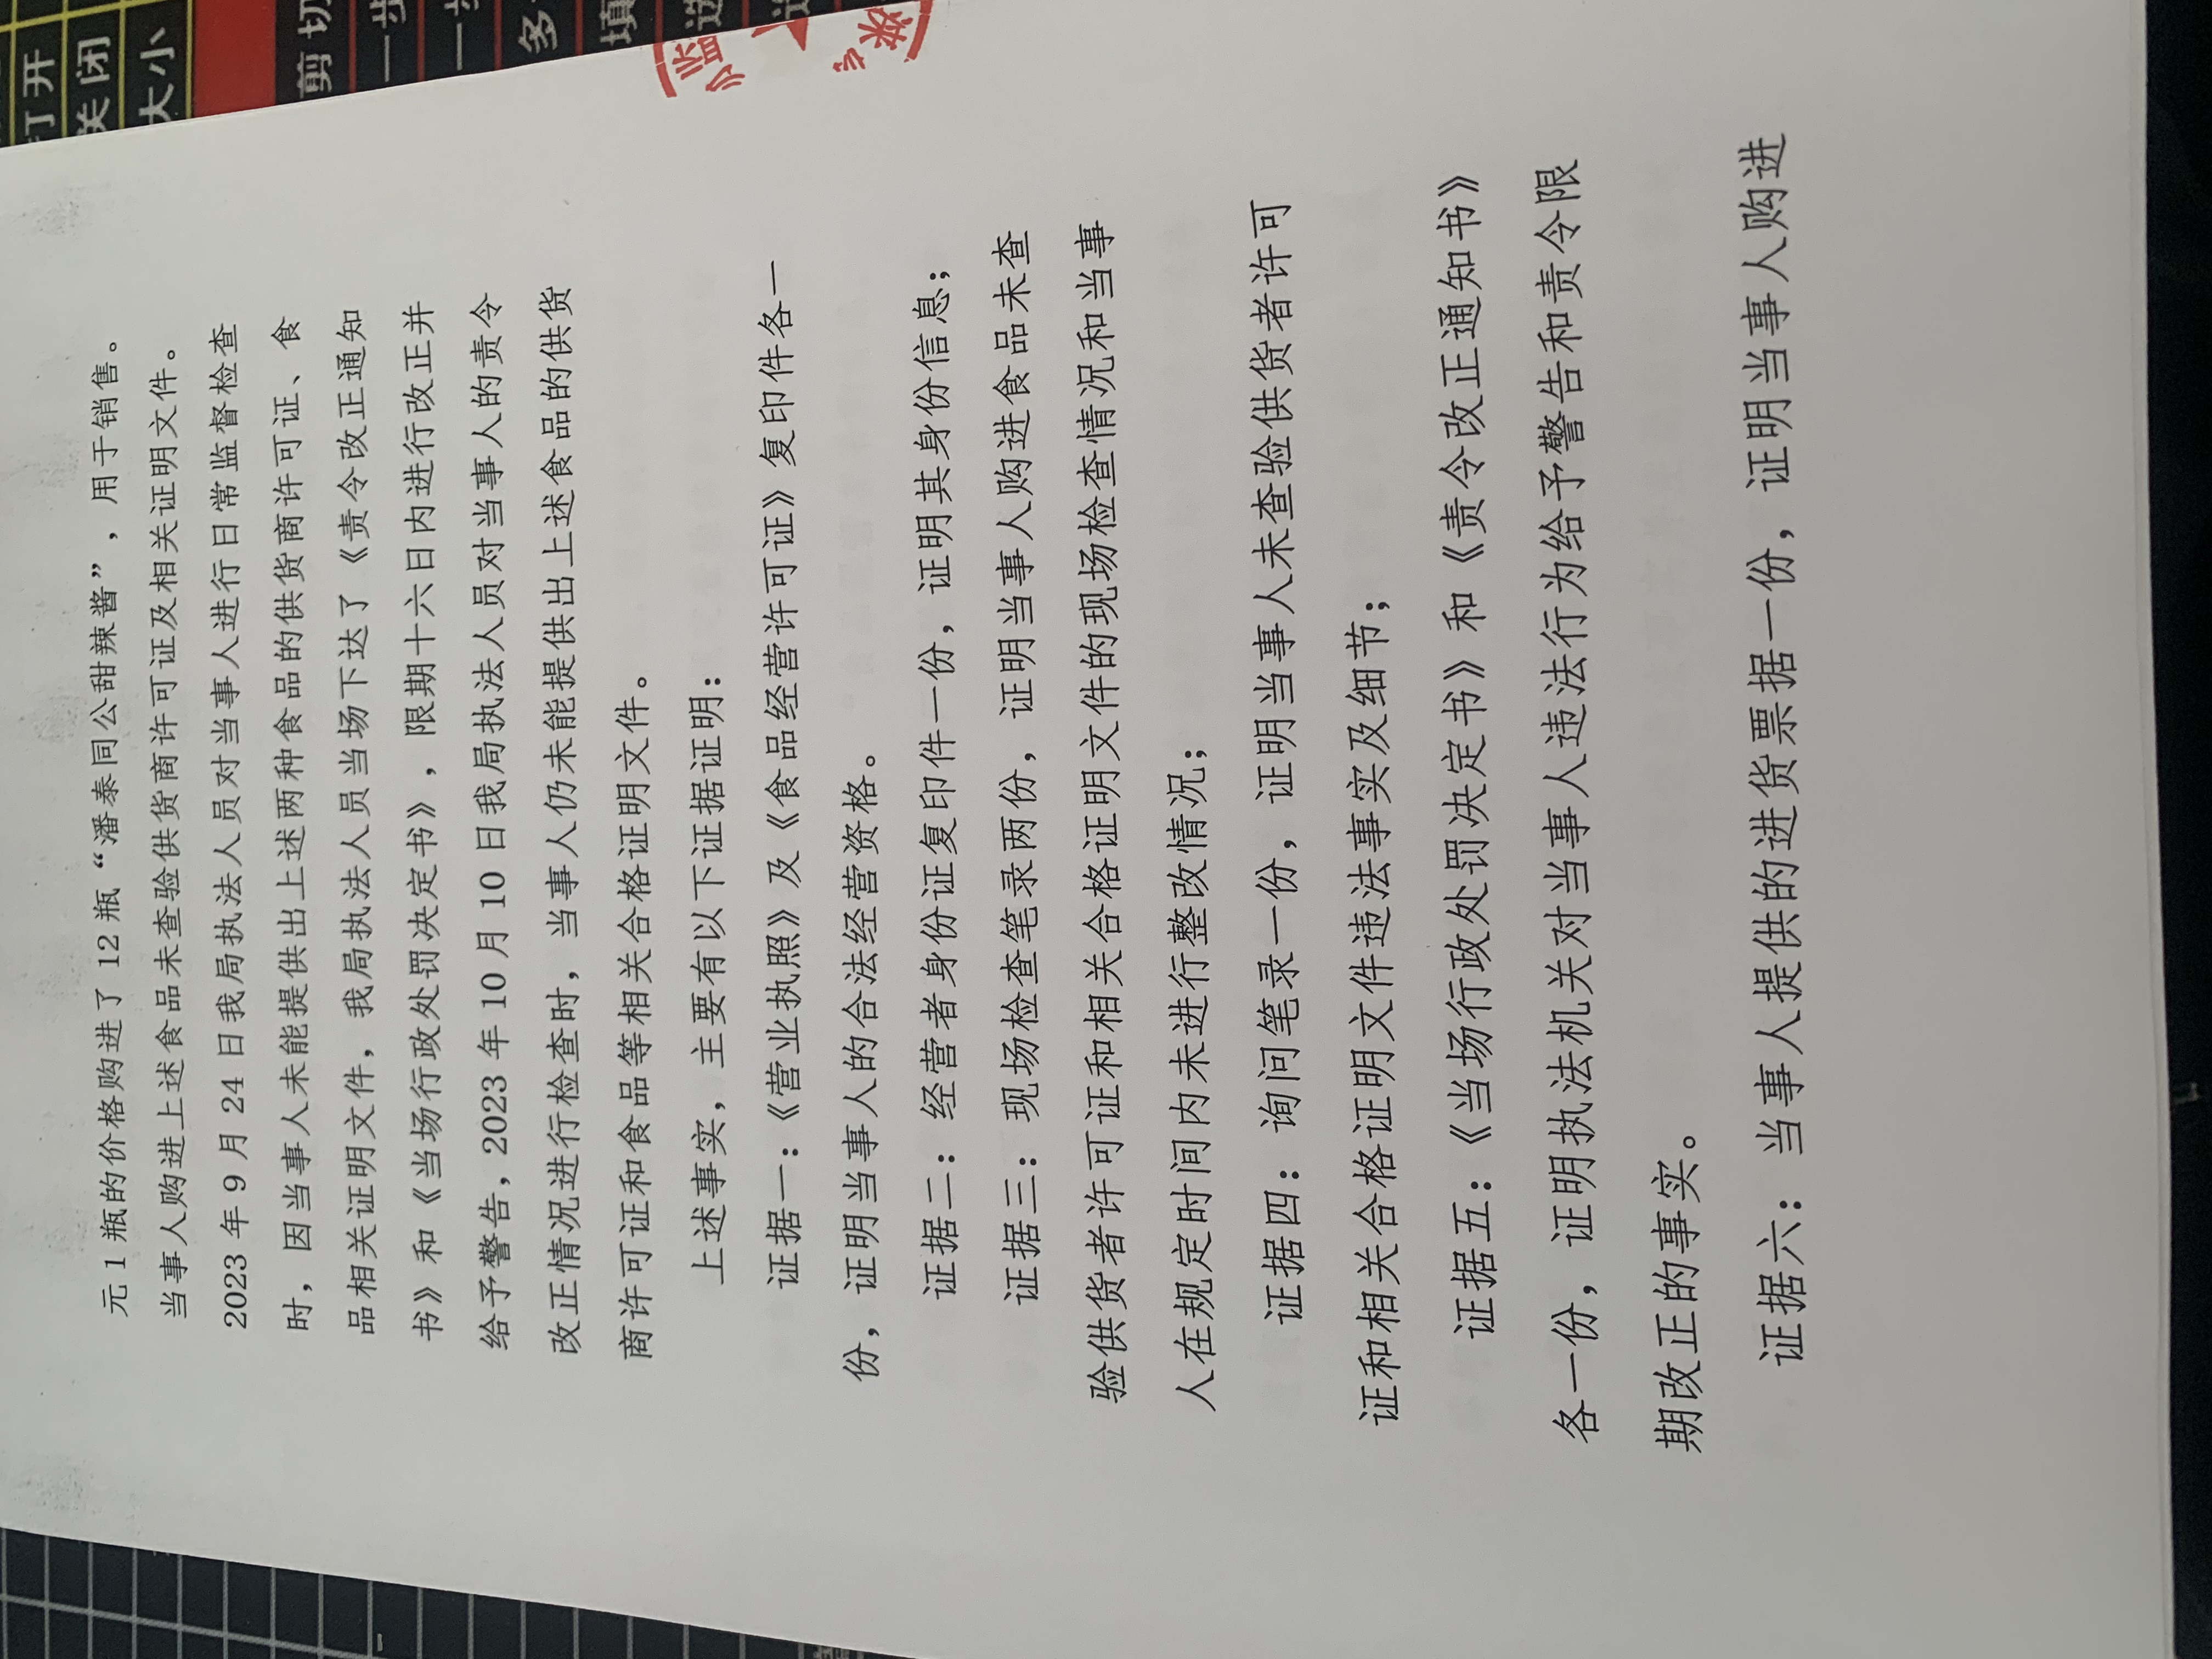 元 1 瓶的价格购进了 12 瓶“潘泰同公甜辣酱”，用于销售。
当事人购进上述食品未查验供货商许可证及相关证明文件。
2023 年 9 月 24 日我局执法人员对当事人进行日常监督检查
时，因当事人未能提供出上述两种食品的供货商许可证、食
品相关证明文件，我局执法人员当场下达了《责令改正通知
书》和《当场行政处罚决定书》，限期十六日内进行改正并
给予警告，2023 年 10 月 10 日我局执法人员对当事人的责令
改正情况进行检查时，当事人仍未能提供出上述食品的供货
商许可证和食品等相关合格证明文件。
上述事实，主要有以下证据证明：
证据一：《营业执照》及《食品经营许可证》复印件各一
份，证明当事人的合法经营资格。
证据二：经营者身份证复印件一份，证明其身份信息；
证据三：现场检查笔录两份，证明当事人购进食品未查
验供货者许可证和相关合格证明文件的现场检查情况和当事
人在规定时间内未进行整改情况；
证据四：询问笔录一份，证明当事人未查验供货者许可
证和相关合格证明文件违法事实及细节；
证据五：《当场行政处罚决定书》和《责令改正通知书》
各一份，证明执法机关对当事人违法行为给予警告和责令限
期改正的事实。
证据六：当事人提供的进货票据一份，证明当事人购进
打开
关闭
大小
剪切
一步
一步
多
填
选
监